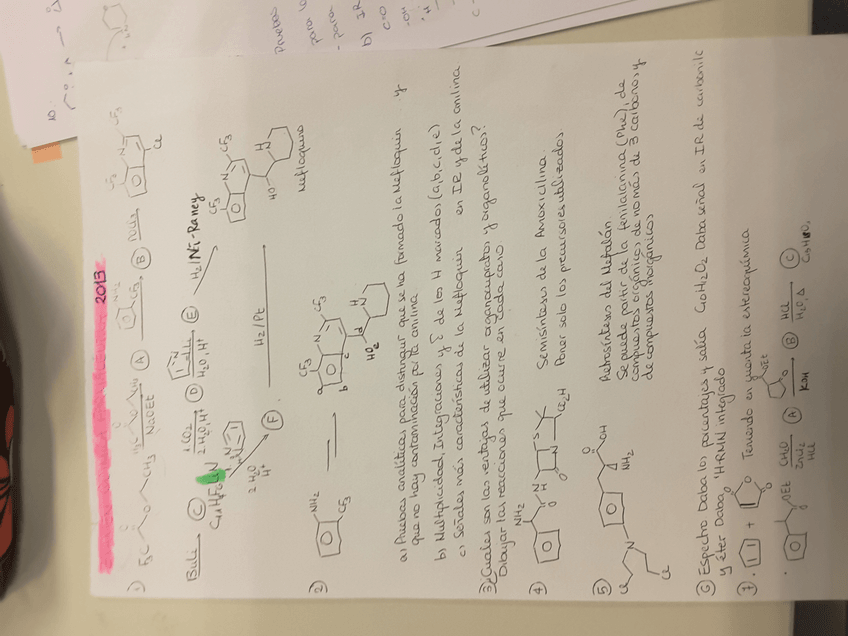 2013
1) F₃C O CH₃
NaOEt
A
NH₂
CF₃
B
POCl₃
CF₃
N
CF₃
Cl
BuLi
C
1. CO₂
2. H₂O, H⁺
D
N
H₂O, H⁺
E
H₂/Ni-Raney
2 H₂O
H⁺
F
H₂/Pt
CF₃
N
CF₃
HO
H
N
Mefloquino
2)
NH₂
CF₃
CF₃
N
CF₃
HO
H
N
a) Pruebas analíticas para distinguir que se ha formado la Mefloquin y
que no hay contaminación por la anilina.
b) Multiplicidad, Integraciones y δ de los H marcados (a,b,c,d,e)
c) Señales más características de la Mefloquin en IR y de la anilina
3) ¿Cuales son las ventajas de utilizar organocupratos y organolíticos?
Dibujar las reacciones que ocurre en cada caso
4)
NH₂
O
H
N
S
O
N
CO₂H
Semisíntesis de la Amoxicilina.
Poner solo los precursores utilizados.
5)
Cl
N
Cl
O
OH
NH₂
Retrosíntesis del Mefalán.
Se puede partir de la fenilalanina (Phe), de
compuestos orgánicos de no más de 3 carbonos, y
de compuestos inorgánicos
6) Espectro Daba los porcentajes y salía C₁₀H₁₂O₂ Daba señal en IR de carbonilo
y éter Daba ¹H-RMN integrado
7) · + Teniendo en cuenta la estereoquímica
·
O
OEt
CH₂O
ZnCl₂
HCl
A
O
OEt
KOH
B
HCl
H₂O, Δ
C